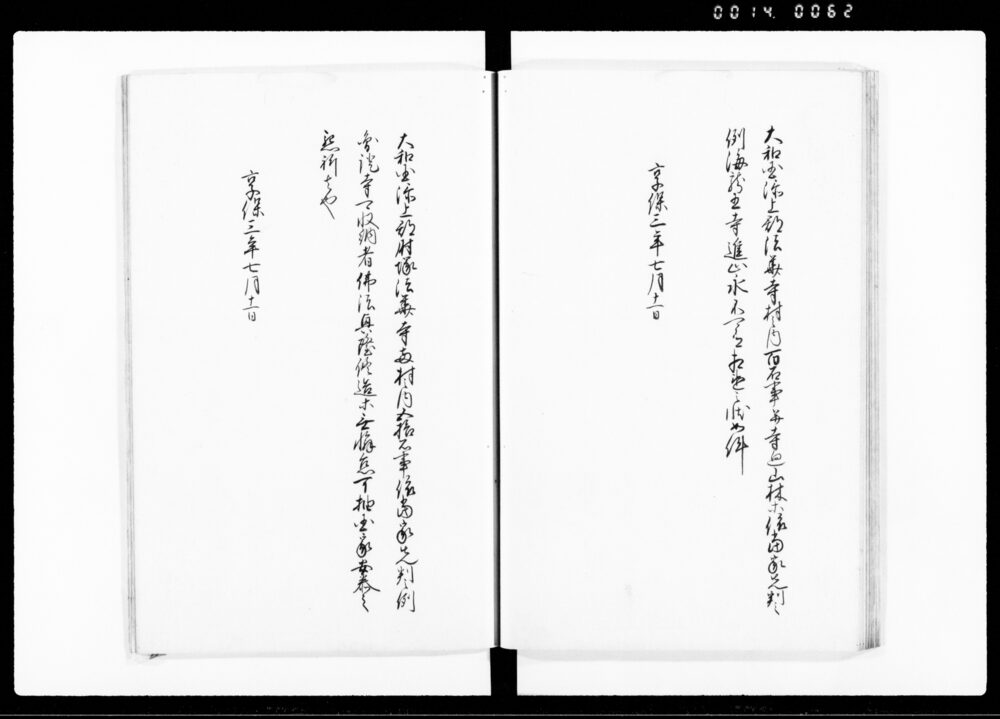 0014 0062
大和国添上郡法華寺村之内百石事并寺辺山林等依当家先判之
例海龍王寺進止永不可有相違之状如件
享保三年七月十一日
大和国添上郡肘塚法華寺両村之内五拾石事依当家先判之例
寺可収納者仏法興隆修造等無懈怠可抽国家安泰之
懇祈者也
享保三年七月十一日